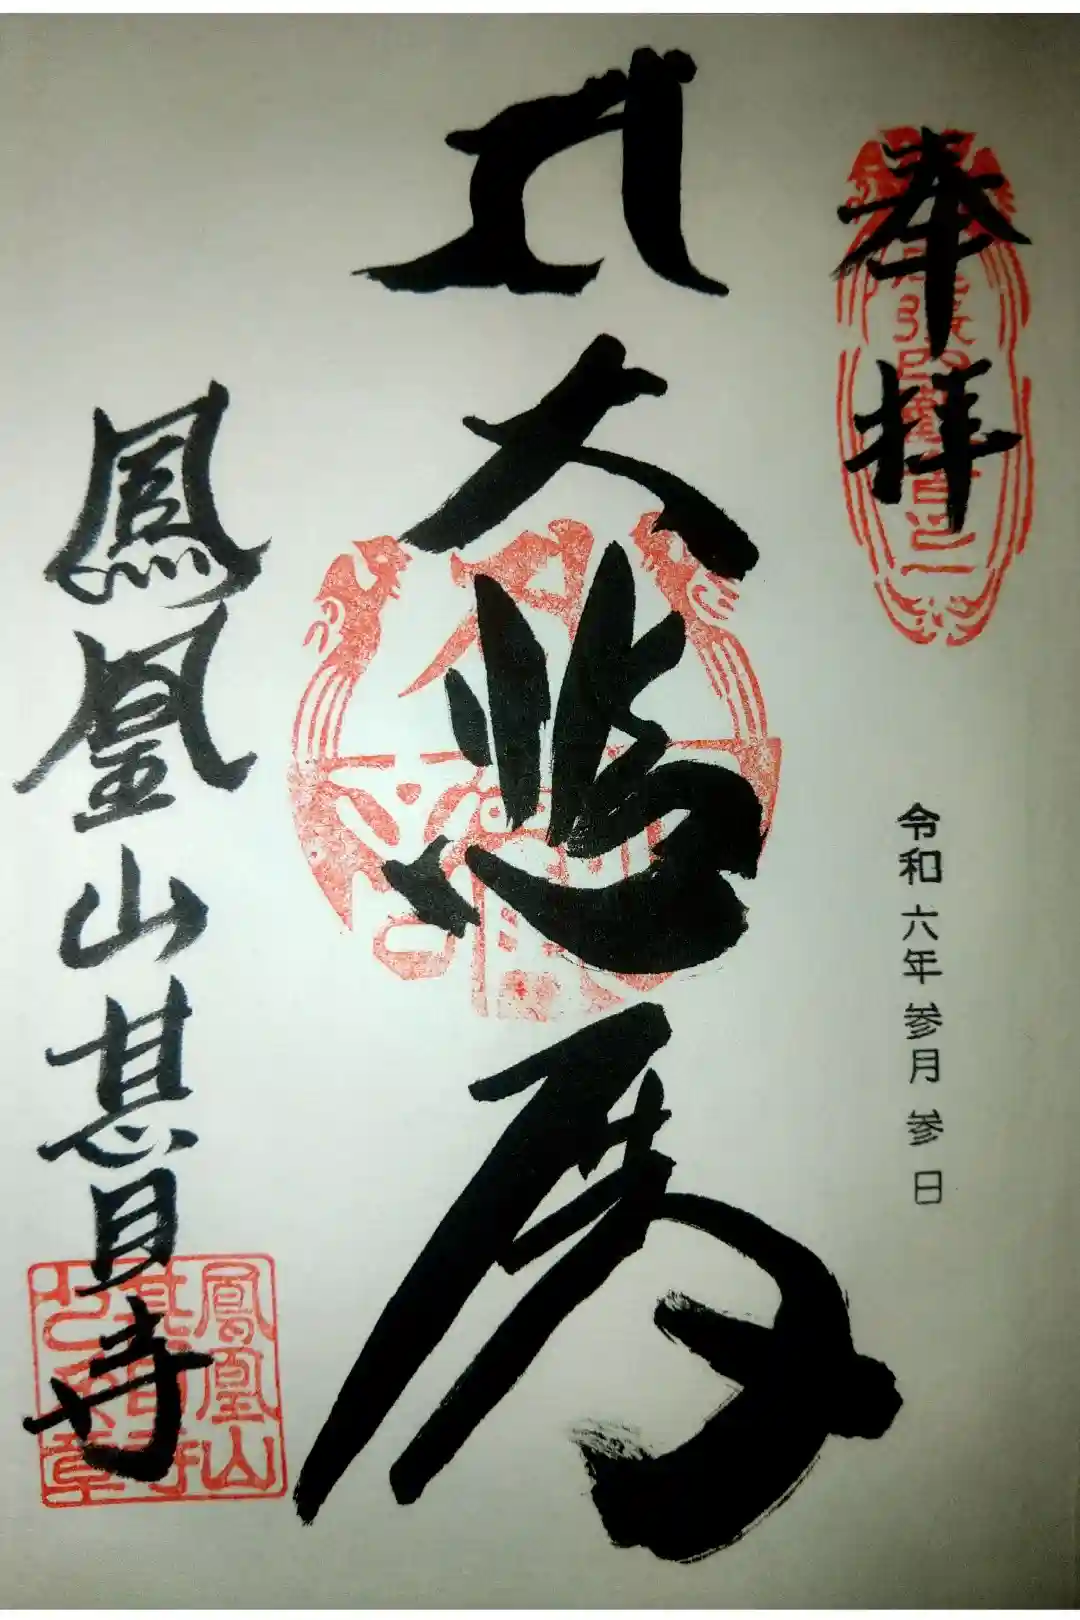 奉拝
令和六年参月参日
𑖭
大悲殿
鳳凰山甚目寺
鳳凰山
甚目寺